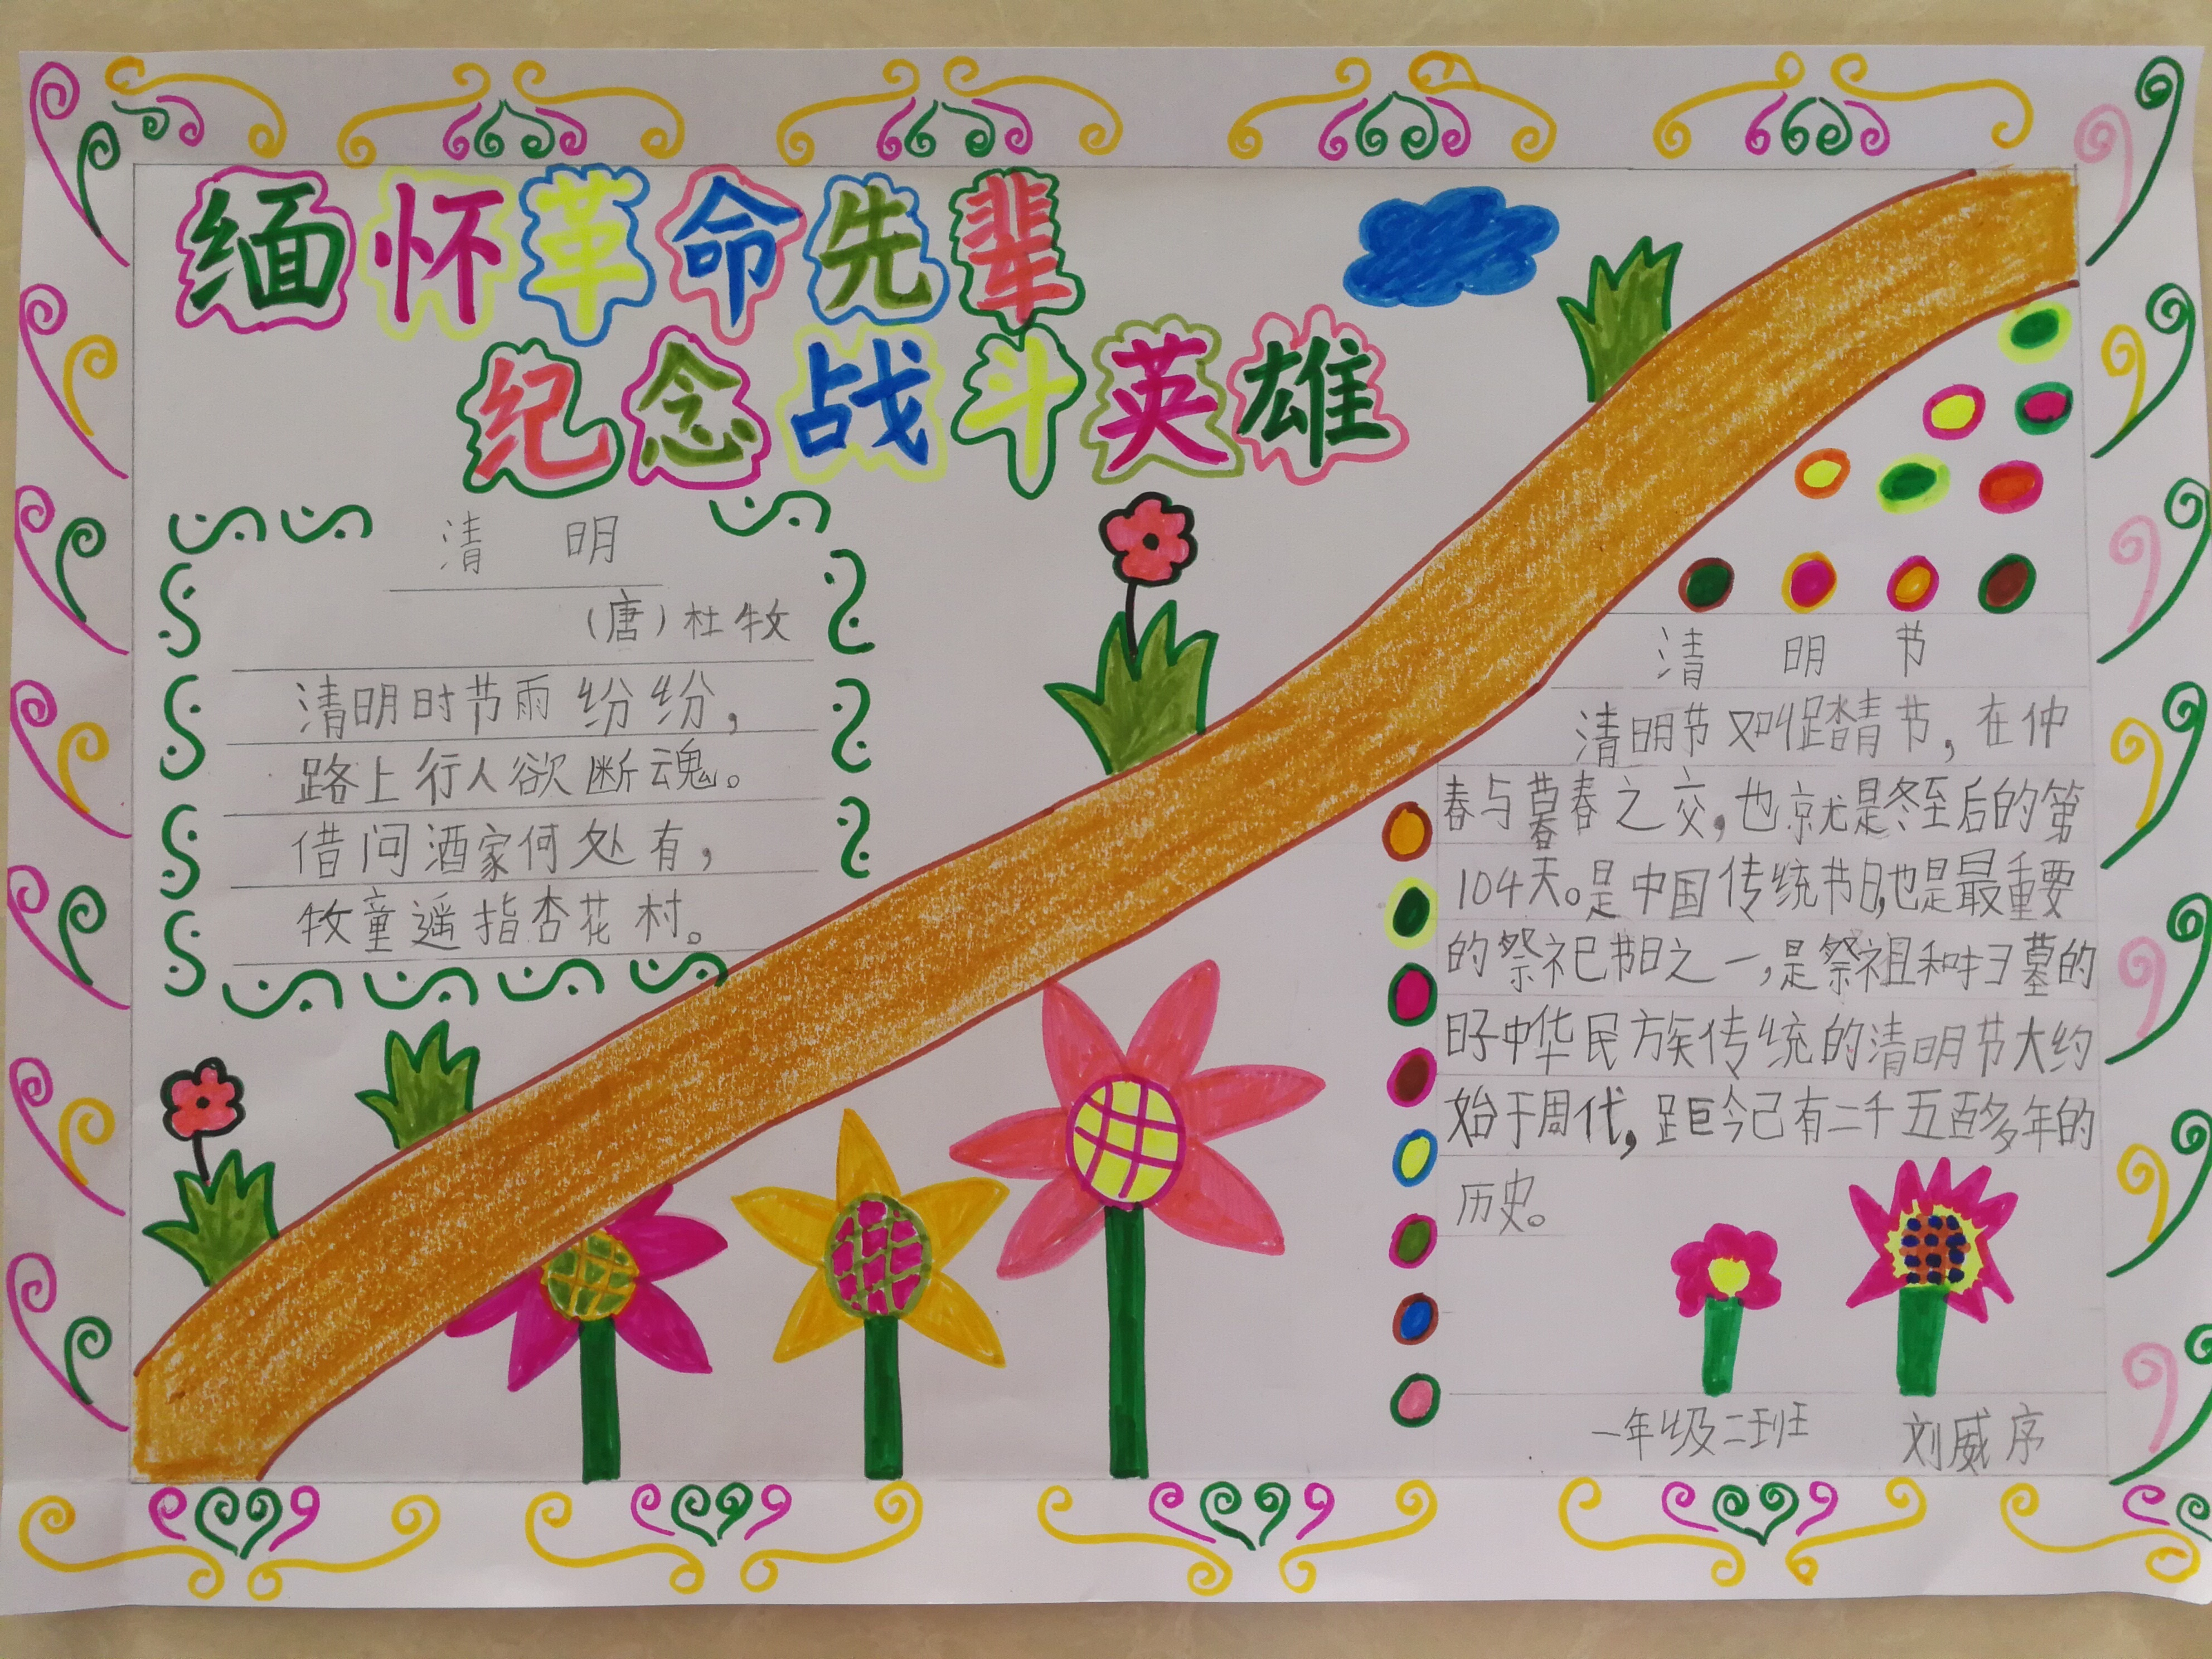 缅怀革命先辈
纪念战斗英雄
清 明
（唐）杜牧
清明时节雨纷纷，
路上行人欲断魂。
借问酒家何处有，
牧童遥指杏花村。
清 明 节
清明节又叫踏青节，在仲
春与暮春之交，也就是冬至后的第
104天。是中国传统节日，也是最重要
的祭祀节日之一，是祭祖和扫墓的
日子中华民族传统的清明节大约
始于周代，距今已有二千五百多年的
历史。
一年级二班 刘威序